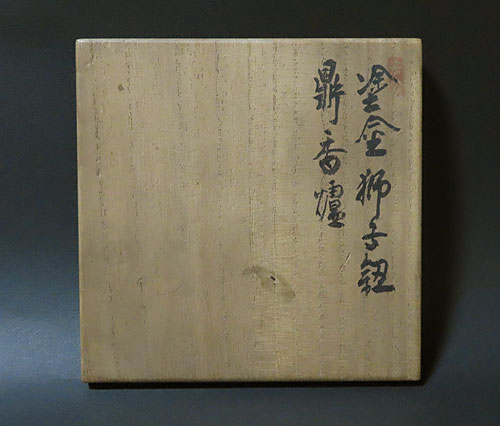 塗金獅子鈕
鼎香爐